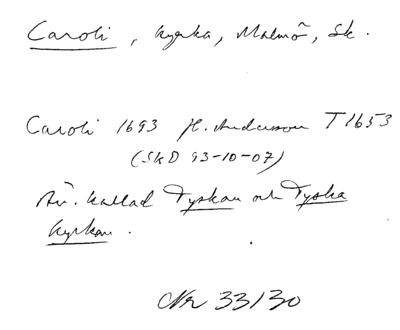 Caroli, kyrka, Malmö, Sk.
Caroli 1693 H. Andersson T1653
(SkD 93-10-07)
Äv. kallad Tyskan och Tyska
kyrkan.
Nr 33130